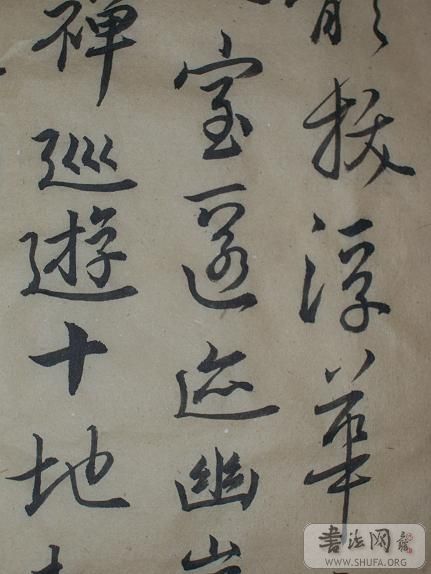 拔浮華
室匿迹幽
禪巡遊十地
書法网
WWW.SHUFA.ORG